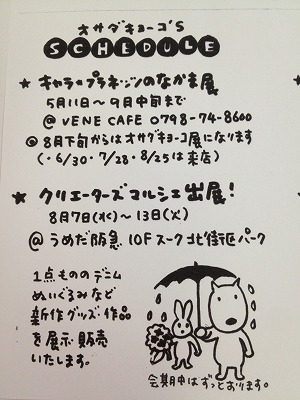 オサダキョーコ'S
SCHEDULE
★ キャラ★プラネッツのなかま展
5月11日〜9月中旬まで
@ VENE CAFE 0798-74-8600
◎ 8月下旬からはオサダキョーコ展になります
(・6/30・7/28・8/25は来店)
★ クリエーターズマルシェ出展!
8月7日(水)〜13日(火)
@ うめだ阪急 10Fスーク北街区パーク
1点もののデニム
ぬいぐるみなど
新作グッズ・作品
を展示販売
いたします。
会期中はずっとおります。